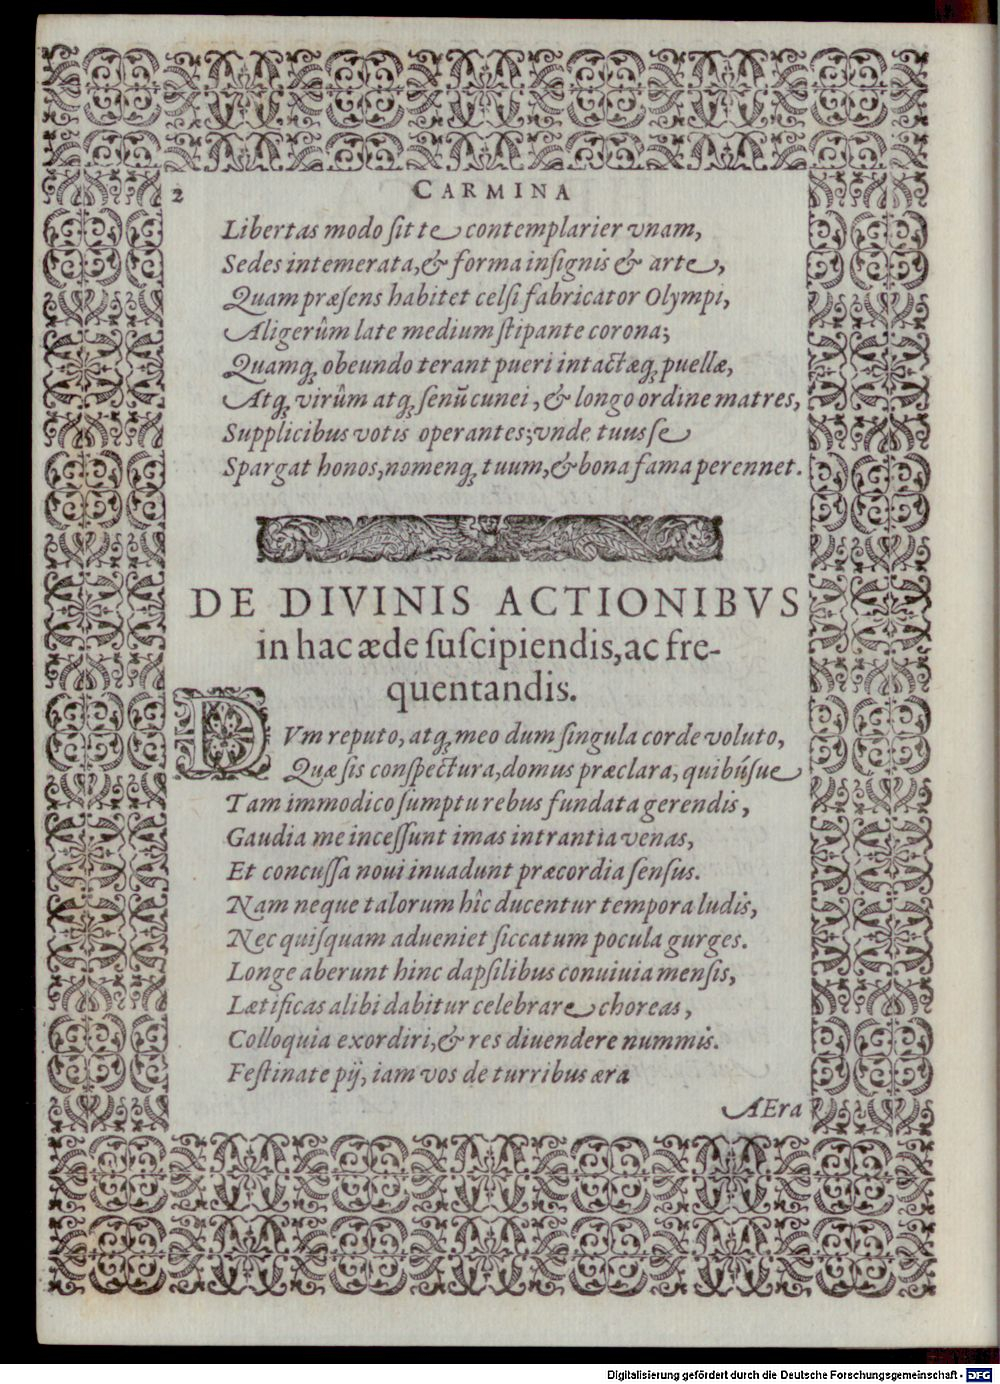 2 CARMINA
Libertas modo ſit te contemplarier vnam,
Sedes intemerata, & forma inſignis & arte,
Quam præſens habitet celſi fabricator Olympi,
Aligerûm late medium ſtipante corona;
Quamq; obeundo terant pueri intactæq; puellæ,
Atq; virûm atq; ſenũ cunei, & longo ordine matres,
Supplicibus votis operantes; vnde tuus ſe
Spargat honos, nomenq; tuum, & bona fama perennet.
DE DIVINIS ACTIONIBVS
in hac æde ſuſcipiendis, ac fre-
quentandis.
DVm reputo, atq; meo dum ſingula corde voluto,
Quæ ſis conſpectura, domus præclara, quibúſue
Tam immodico ſumptu rebus fundata gerendis,
Gaudia me inceſſunt imas intrantia venas,
Et concuſſa noui inuadunt præcordia ſenſus.
Nam neque talorum hîc ducentur tempora ludis,
Nec quiſquam adueniet ſiccatum pocula gurges.
Longe aberunt hinc dapſilibus conuiuia menſis,
Lætificas alibi dabitur celebrare choreas,
Colloquia exordiri, & res diuendere nummis.
Feſtinate pij, iam vos de turribus æra
AEra
Digitalisierung gefördert durch die Deutsche Forschungsgemeinschaft - DFG